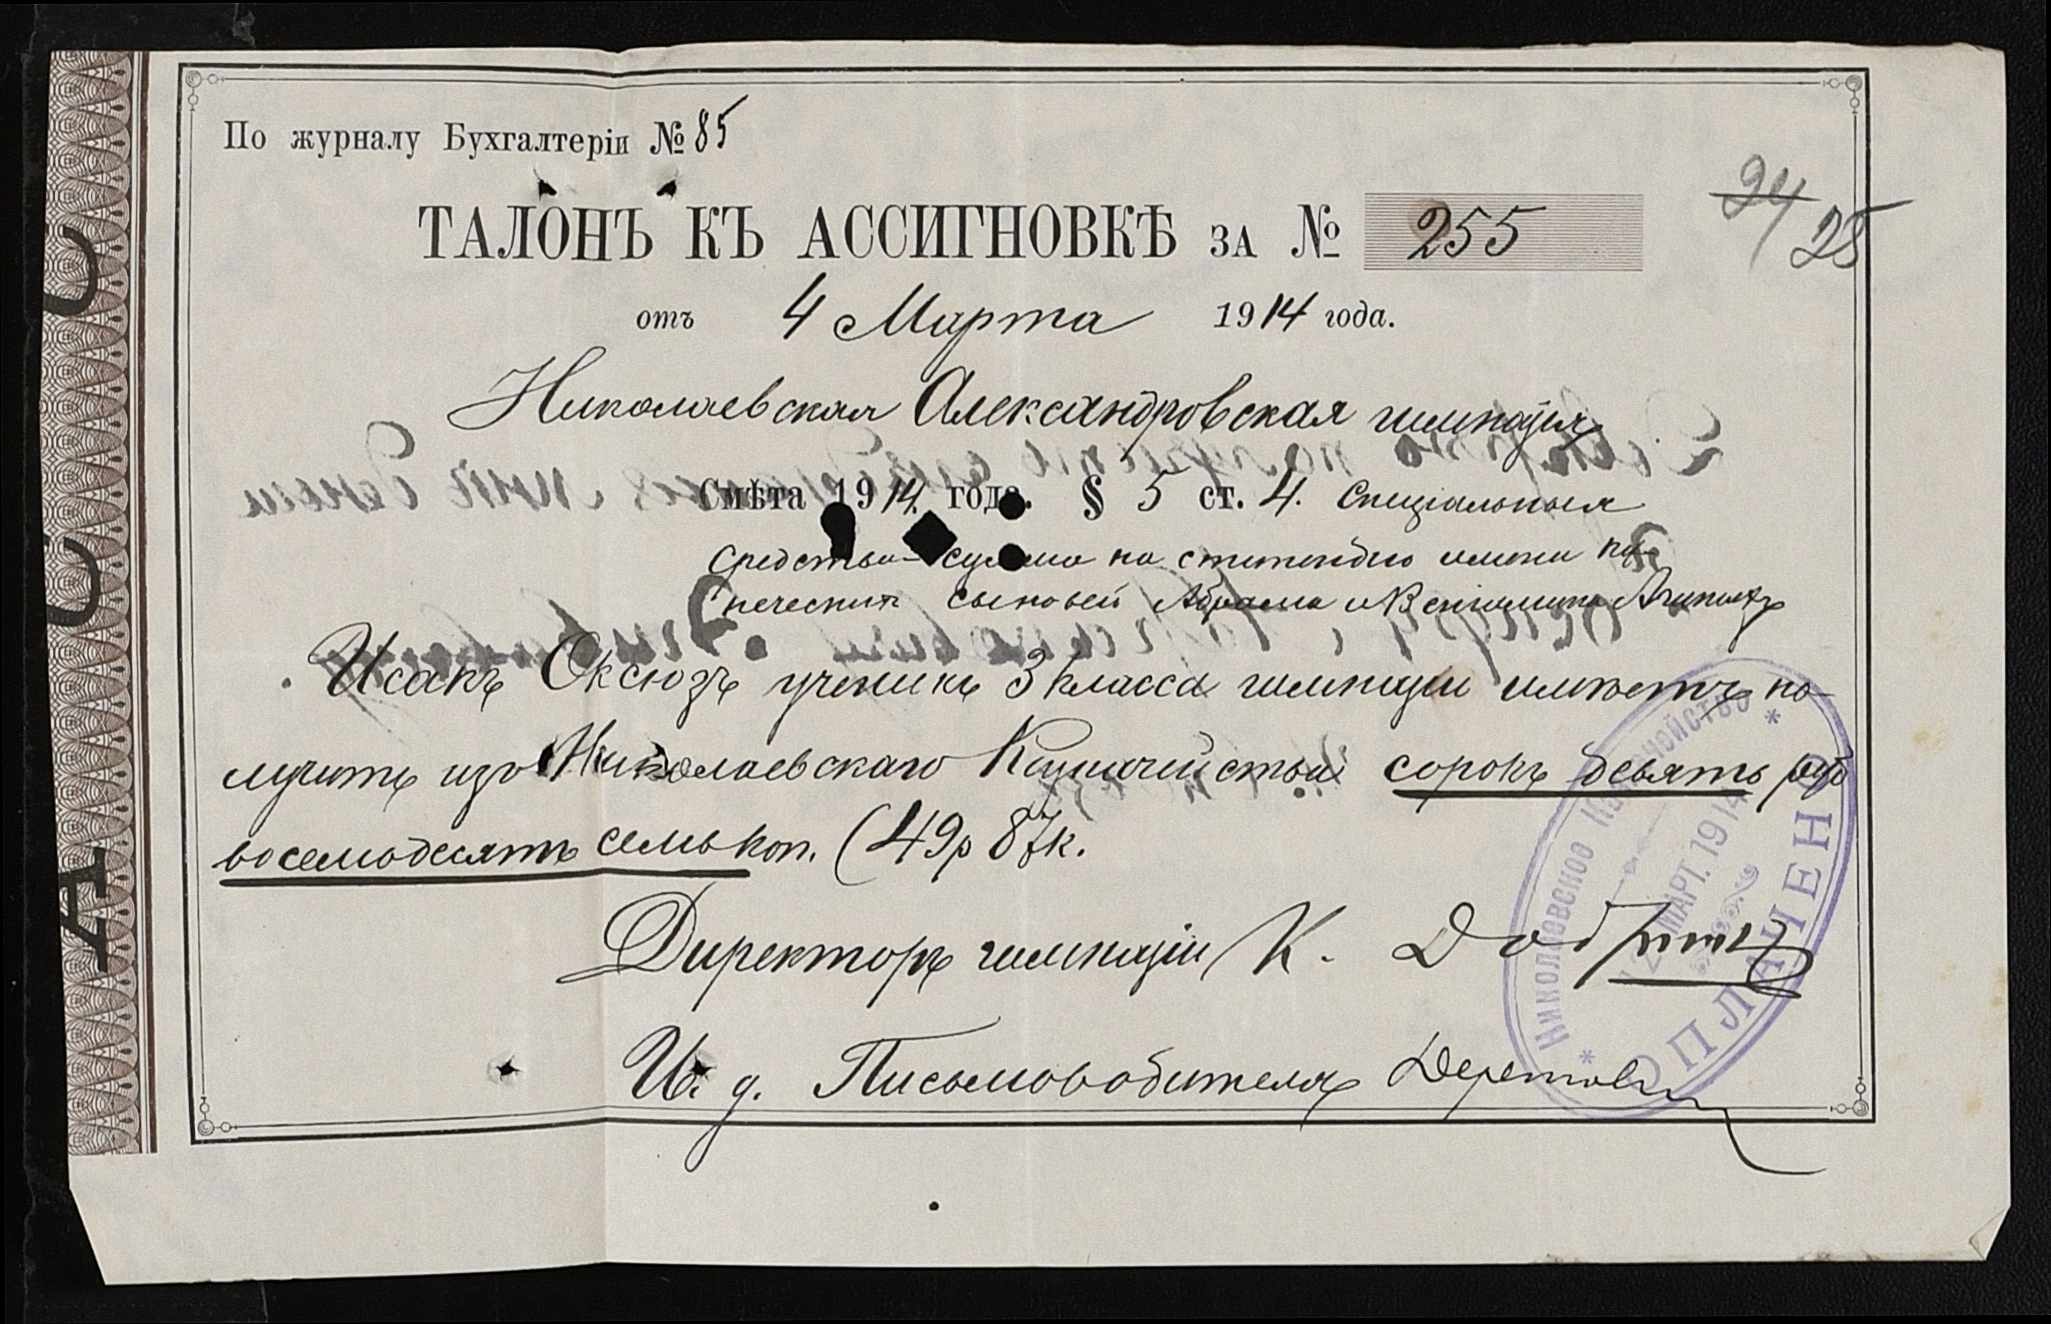 По журналу Бухгалтеріи № 85
24 25
ТАЛОНЪ КЪ АССИГНОВКѢ ЗА № 255
отъ 4 Марта 1914 года.
Николаевская Александровская гимназія
Смѣта 1914 года. § 5 ст. 4. Спеціальныя
средства – сумма на стипендію имени ку-
печескихъ сыновей Абрама и Веніамина
Исакъ Оксюзъ ученикъ 3 класса гимназіи имѣетъ по-
лучить изъ Николаевскаго Казначейства сорокъ девять руб
восемьдесятъ семь коп. (49р 87к.
Директоръ гимназіи К.
И. д. Письмоводителя
Николаевское Казначейство
12 МАРТ. 1914
ОПЛАЧЕНО